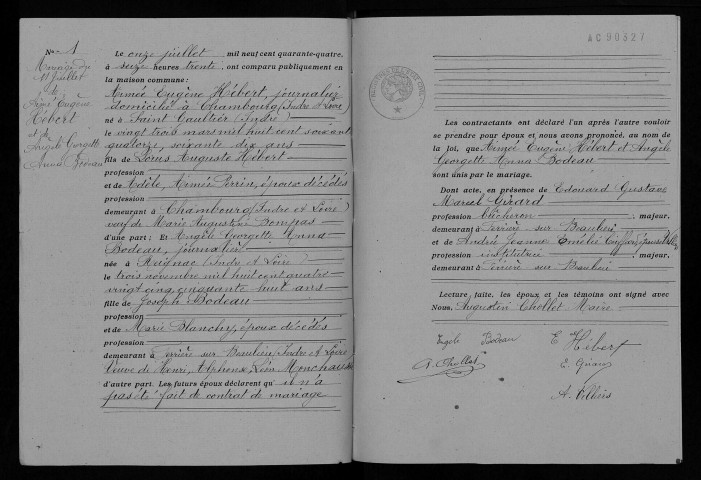 No 1
Mariage du
11 Juillet
de
Aimé Eugène
Hébert
et de
Angèle Georgette
Anna Bodeau
Le onze juillet mil neuf cent quarante-quatre,
à seize heures trente, ont comparu publiquement en
la maison commune:
Aimée Eugène Hébert, journalier
domicilié à Chambourg (Indre et Loire)
né à Saint Gaultier (Indre)
le vingt trois mars mil huit cent soixante
quatorze, soixante dix ans
fils de Louis Auguste Hébert
profession
et de Adèle, Aimée Perrin, époux décédés
profession
demeurant à Chambourg (Indre et Loire)
veuf de Marie Augustine Bompas
d'une part: Et Angèle Georgette Anna
Bodeau, journalière
née à Reignac (Indre et Loire)
le trois novembre mil huit cent quatre
vingt cinq, cinquante huit ans
fille de Joseph Bodeau
profession
et de Marie Blanchy, époux décédés
profession
demeurant à Perrière sur Beaulieu, Indre et Loire
Veuve de Henri, Alphonse, Léon,
d'autre part. Les futurs époux déclarent qu' il n'a
pas été fait de contrat de mariage
AC90327
Les contractants ont déclaré l'un après l'autre vouloir
se prendre pour époux et nous avons prononcé, au nom de
la loi, que Aimée Eugène Hébert et Angèle
Georgette Anna Bodeau
sont unis par le mariage.
Dont acte, en présence de Edouard Gustave
Marcel Girard
profession Bûcheron, majeur,
demeurant à sur Beaulieu
et de Andrée Jeanne Emélie
profession institutrice, majeur,
demeurant à sur Beaulieu
Lecture faite, les époux et les témoins ont signé avec
Nous, Augustin Chollet Maire
Angèle Bodeau E Hébert
A. Chollet E. Girard
A. Villiers